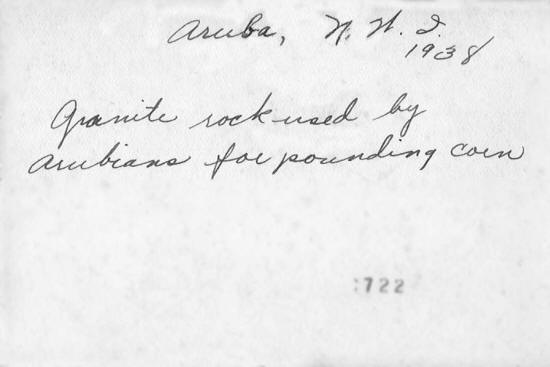 Aruba, N. W. I.
1938
Granite rock used by
Arubians for pounding corn
:722